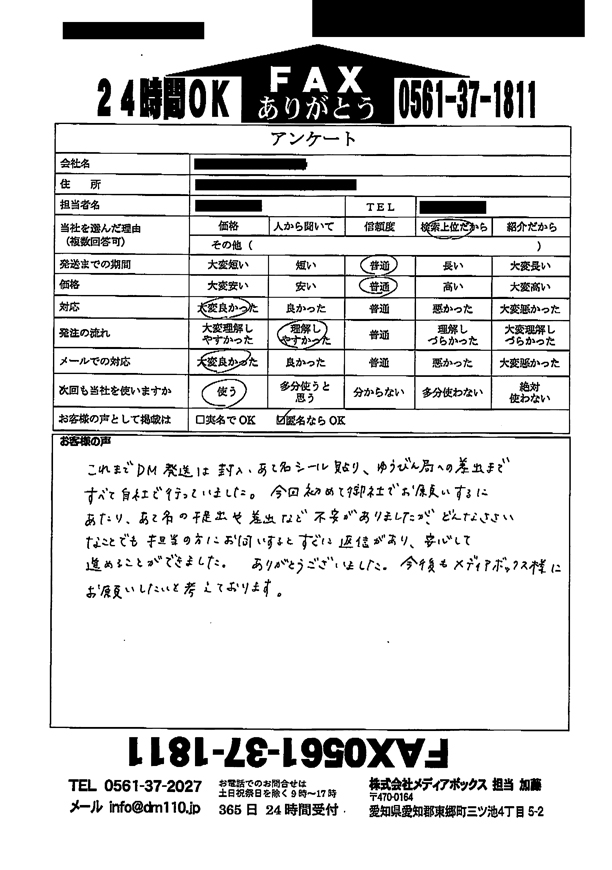 24時間OK
FAX
ありがとう
0561-37-1811
アンケート
会社名
住 所
担当者名 TEL
当社を選んだ理由
(複数回答可)
価格 人から聞いて 信頼度 検索上位だから 紹介だから
その他( )
発送までの期間 大変短い 短い 普通 長い 大変長い
価格 大変安い 安い 普通 高い 大変高い
対応 大変良かった 良かった 普通 悪かった 大変悪かった
発注の流れ 大変理解しやすかった 理解しやすかった 普通 理解しづらかった 大変理解しづらかった
メールでの対応 大変良かった 良かった 普通 悪かった 大変悪かった
次回も当社を使いますか 使う 多分使うと思う 分からない 多分使わない 絶対使わない
お客様の声として掲載は □実名でOK ☑匿名ならOK
お客様の声
これまでDM発送は封入、あて名シール貼り、ゆうびん局への差出まで
すべて自社で行っていました。今回初めて御社でお願いするに
あたり、あて名の提出や差出など不安がありましたが、どんなささい
なことでも担当の方にお伺いするとすぐに返信があり、安心して
進めることができました。ありがとうございました。今後もメディアボックス様に
お願いしたいと考えております。
FAX0561-37-1811
TEL 0561-37-2027
メール info@dm110.jp
お電話でのお問合せは
土日祝祭日を除く9時〜17時
365日 24時間受付
株式会社メディアボックス 担当 加藤
〒470-0164
愛知県愛知郡東郷町三ツ池4丁目5-2